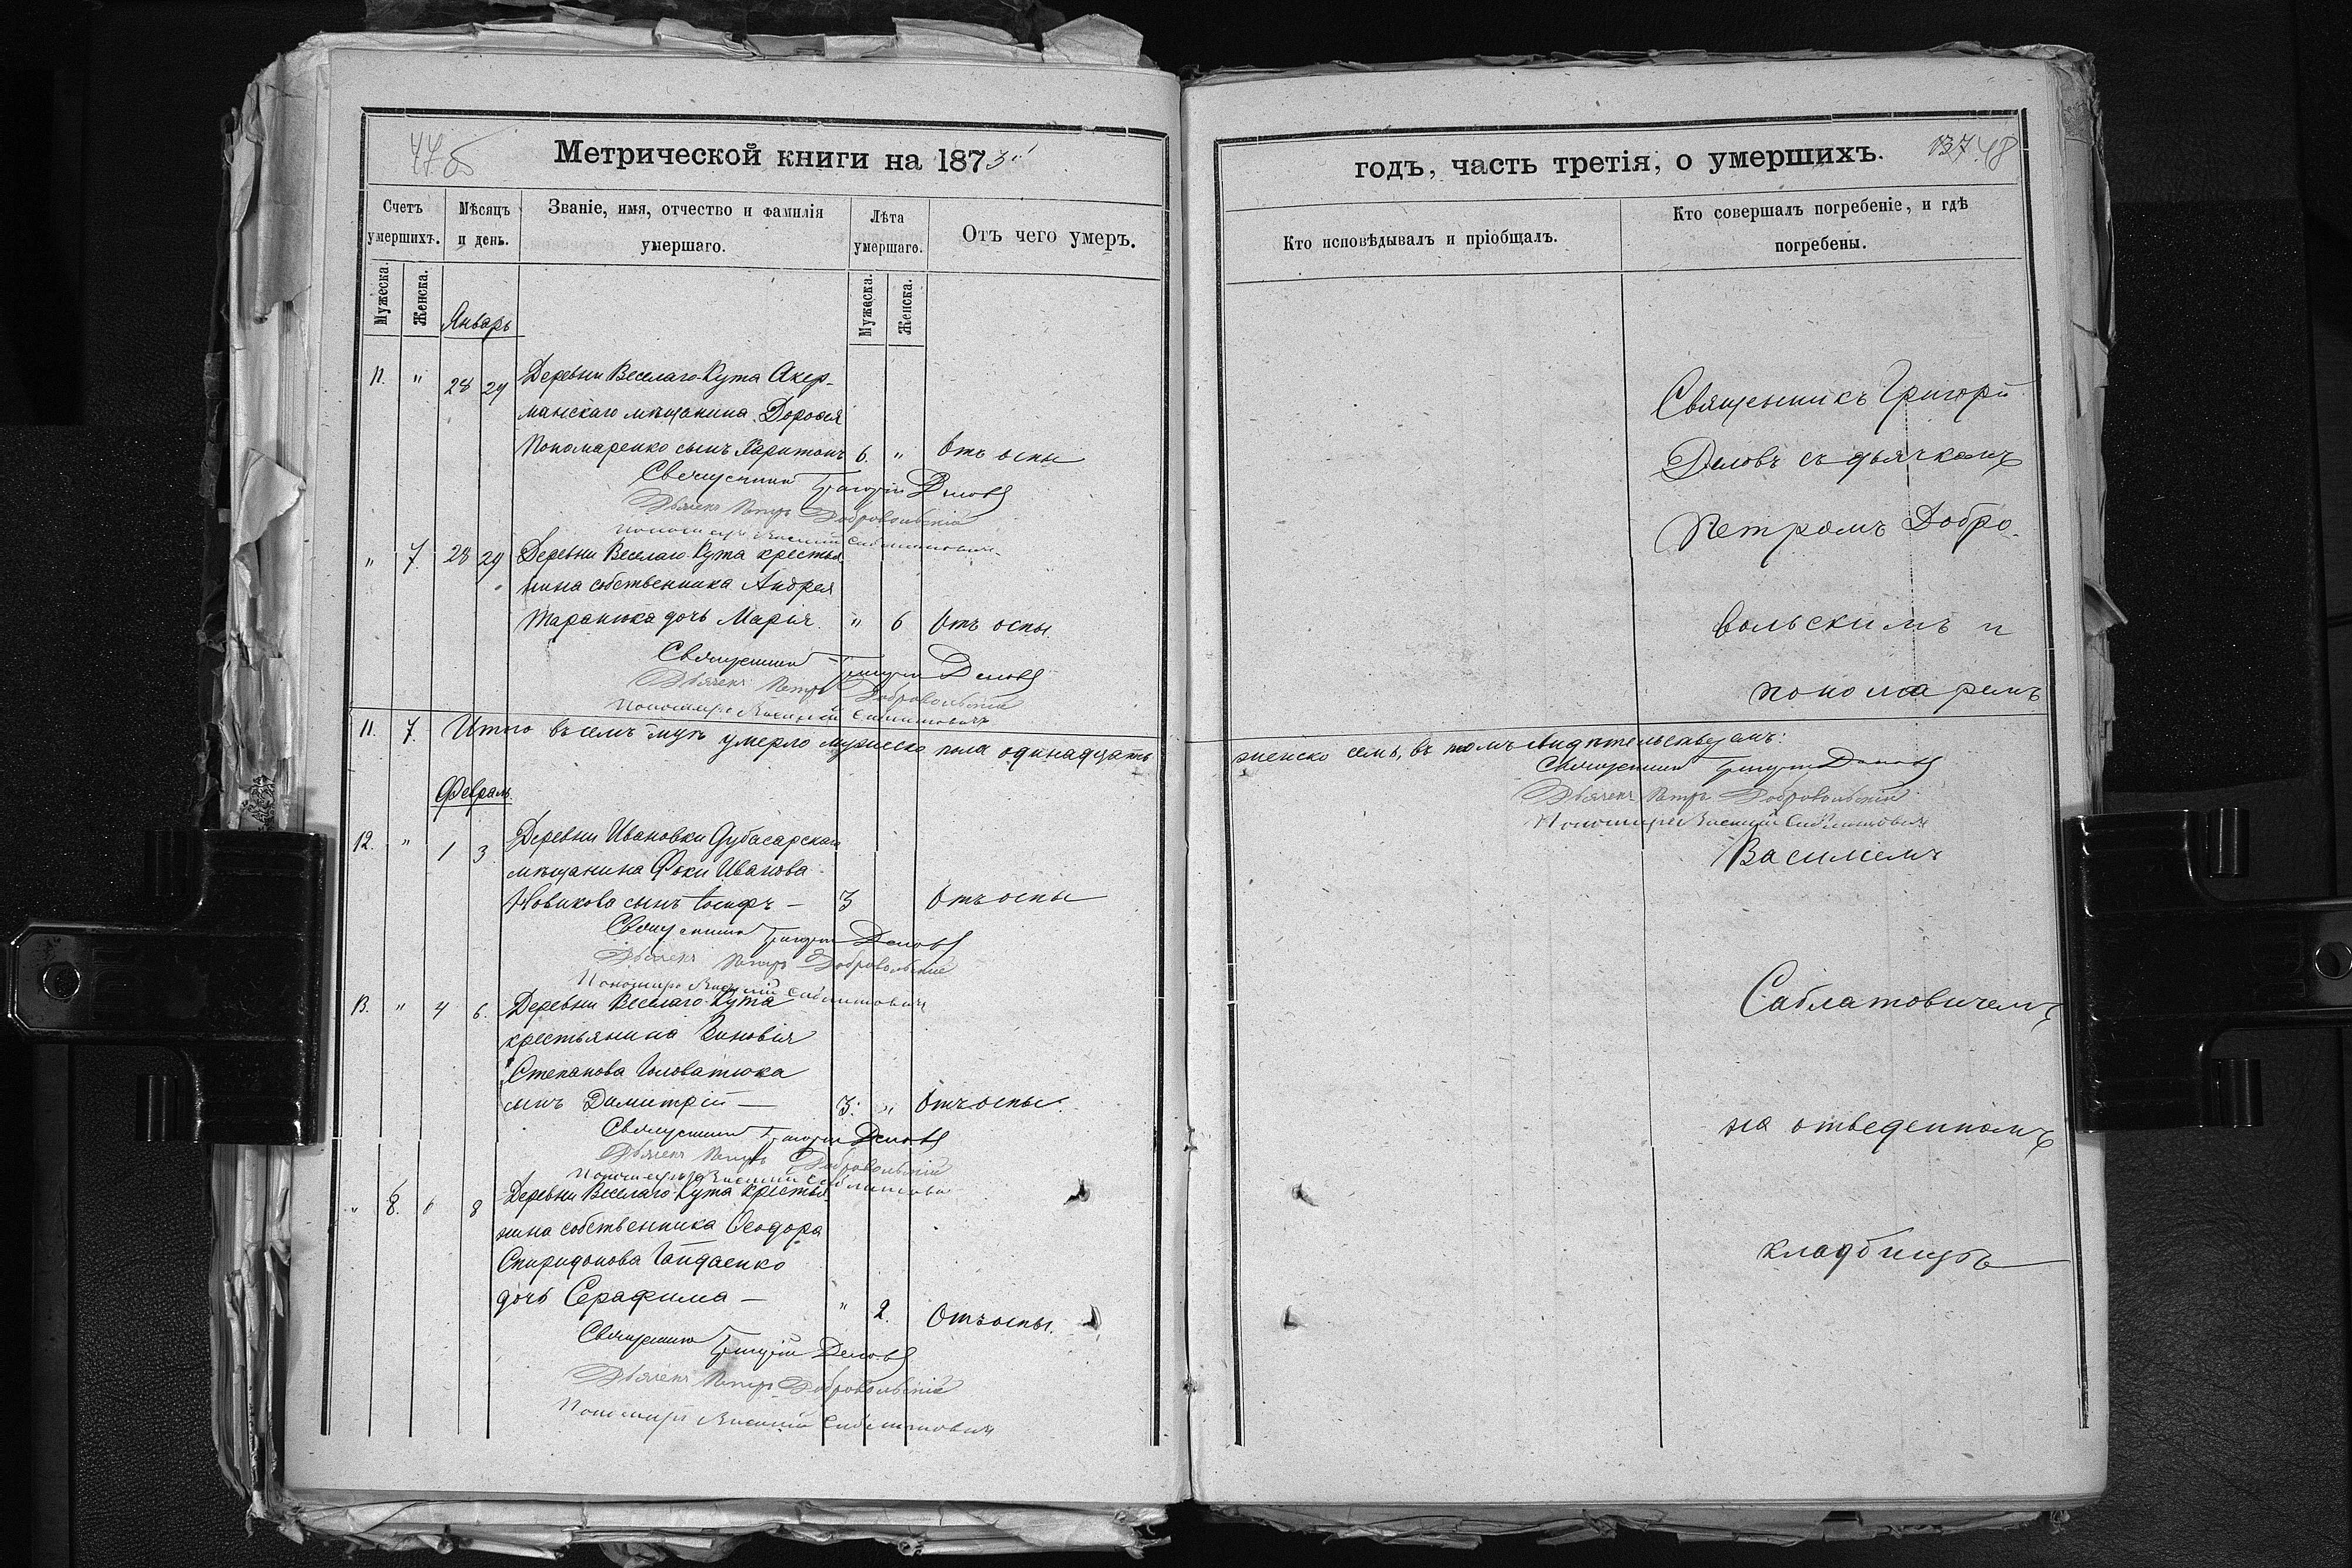 Метрической книги на 1873й
Счетъ умершихъ.
Мѣсяцъ и день.
Званіе, имя, отчество и фамилія умершаго.
Лѣта умершаго.
Отъ чего умеръ.
Мужеска.
Женска.
Январь
Мужеска.
Женска.
11. " 28 29 Деревни Веселаго-Кута Акер-
манскаго мѣщанина Дороѳея
Пономаренко сынъ Харитонъ 6. " Отъ оспы
Священникъ Григорій Деловъ
Дьячекъ Петръ Добровольскій
Пономарь Василій Саблатовичъ
" 7. 28 29 Деревни Веселаго-Кута крестья
нина собственника Андрея
Таранюка дочь Марія. " 6 Отъ оспы
Священникъ Григорій Деловъ
Дьячекъ Петръ Добровольскій
Пономарь Василій Саблатовичъ
11. 7. Итого въ семъ м-цѣ умерло мужеска пола одинадцать
Февраль
12. " 1 3 Деревни Ивановки Дубасарскаго
мѣщанина Фоки Иванова
Новикова сынъ Іосифъ – 3 Отъ оспы
Священникъ Григорій Деловъ
Дьячекъ Петръ Добровольскій
Пономарь Василій Саблатовичъ
13. " 4 6. Деревни Веселаго-Кута
крестьянина Зиновія
Степанова Головатюка
сынъ Димитрій — 3. " Отъ оспы.
Священникъ Григорій Деловъ
Дьячекъ Петръ Добровольскій
Пономарь Василій Саблатовичъ
" 8. 6 8 Деревни Веселаго-Кута крестья
нина собственника Ѳеодора
Спиридонова Гайдаенко
дочь Серафима — " 2. Отъ оспы.
Священникъ Григорій Деловъ
Дьячекъ Петръ Добровольскій
Пономарь Василій Саблатовичъ
годъ, часть третія, о умершихъ.
137 48
Кто исповѣдывалъ и пріобщалъ.
Кто совершалъ погребеніе, и гдѣ
погребены.
Священникъ Григорій
Деловъ съ дьячкомъ
Петромъ Добро-
вольскимъ и
пономаремъ
женско семь, въ томъ свидѣтельствуемъ:
Священникъ Григорій Деловъ
Дьячекъ Петръ Добровольскій
Пономарь Василій Саблатовичъ
Василіемъ
Саблатовичемъ
на отведенномъ
кладбищѣ